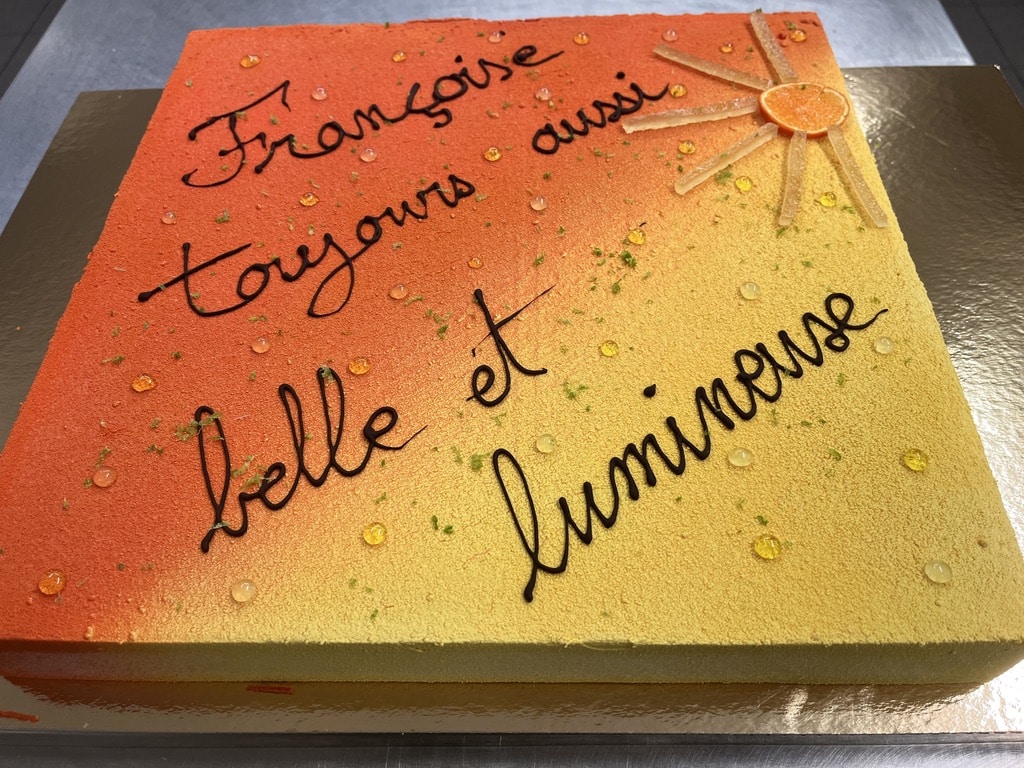 Françoise
toujours aussi
belle et
lumineuse